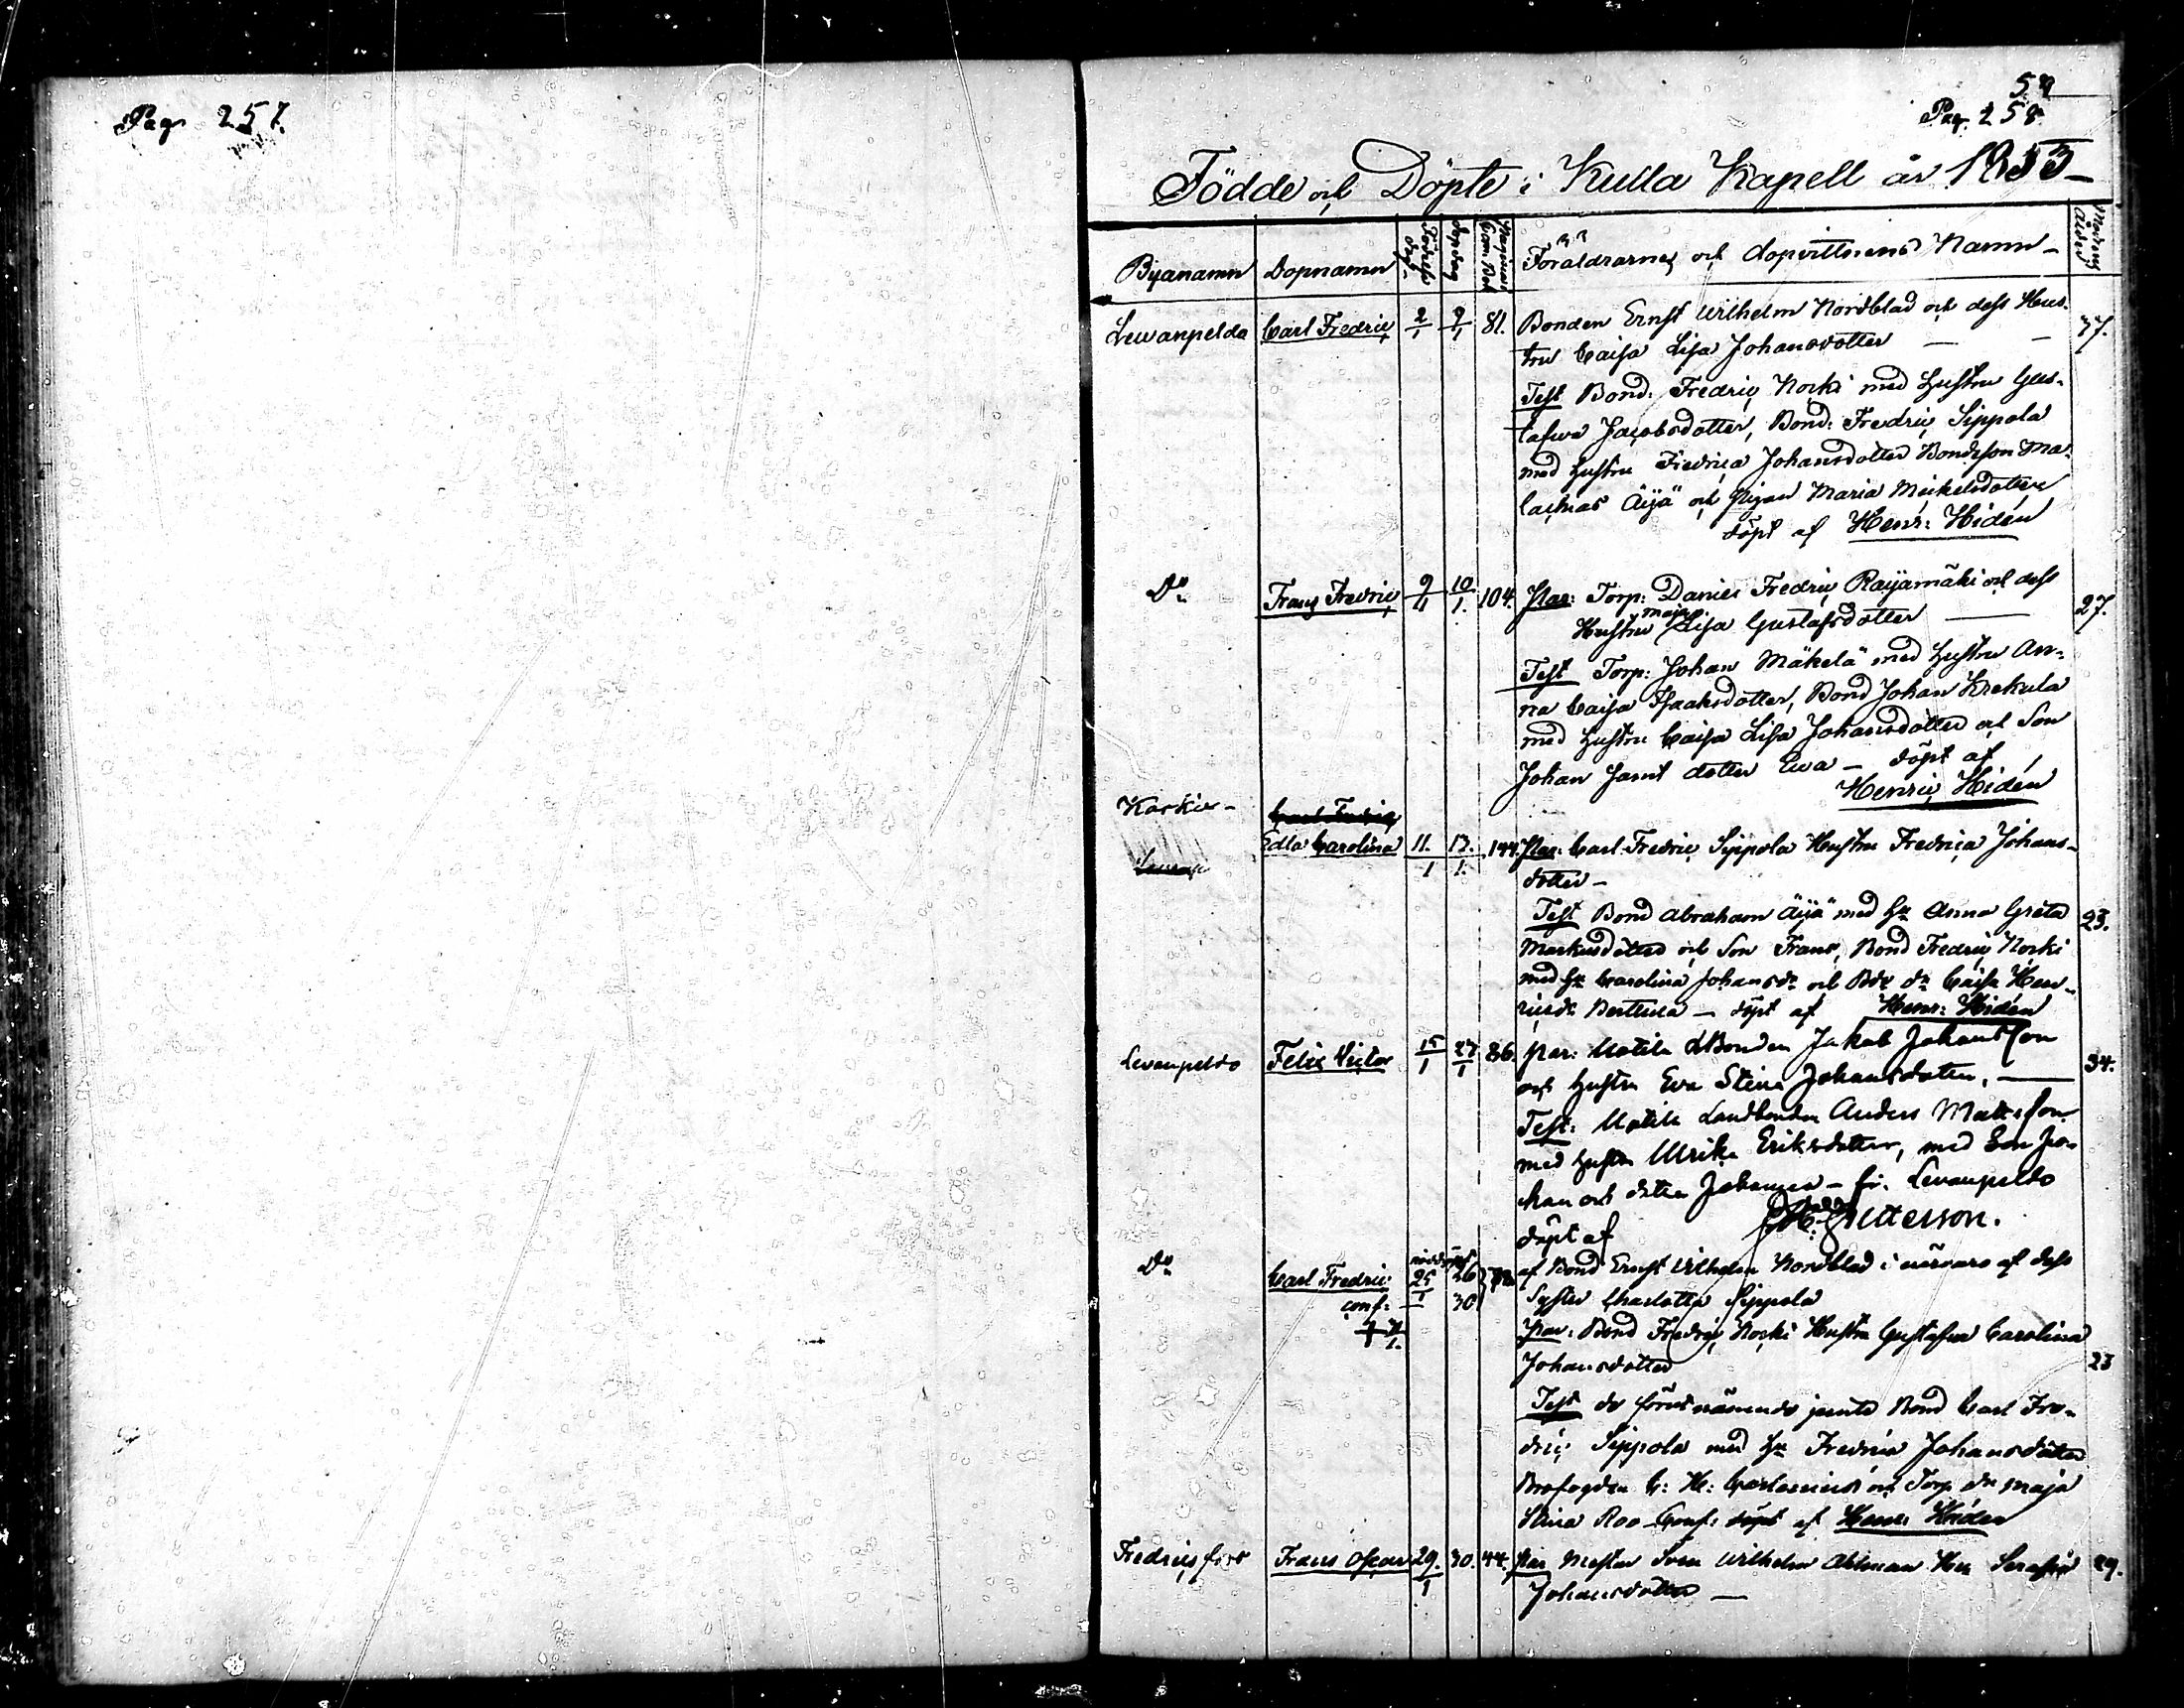 Pag. 257.
54
Pag. 258.
Födde och Döpte i Kulla Kapell år 1853
Byanamn Dopnamn Födelse dag Dopdag Pagina i Com. Bok Föräldrarnes och dopvittnens Namn Modrens ålder
Lewanpeldo Carl Fredric 2/1 9/1 81. Bonden Ernst Wilhelm Nordblad och dess Hus- 37.
tru Caisa Lisa Johansdotter
Test Bond: Fredric Koski med hustru Gus-
tafwa Jacobsdotter, Bond: Fredric Sippola
med hustru Fredrica Johansdotter Bondeson Ma-
lachias Äijä och pigan Maria Mickelsdotter
döpt af Henr: Hidén
Do Frans Fredric 9/1 10/1. 104. Par: Torp: Daniel Fredric Rayamäki och dess 27.
Hustru Maja Lisa Gustafsdotter
Test Torp: Johan Mäkelä med hustru An-
na Caisa Isaaksdotter, Bond Johan Krekula
med hustru Caisa Lisa Johansdotter och Son
Johan samt dotter Ewa - döpt af
Henric Hidén
Koskis- Carl Fredric
Edla Carolina 11./1 13./1. 144. Par: Carl Fredric Sippola Hustru Fredrica Johans-
dotter -
Test Bond Abraham Äijä med Hu Anna Greta 23.
Markusdotter och Son Frans, Bond Fredric Koski
med Hu Carolina Johansdr och Bde dr Caisa Hen-
ricsdr Berttula - döpt af Henr: Hidén
Levanpelto Felix Victor 15/1 27/1 86. Par: Uotila LBonden Jakob Johansson 34.
och hustru Eva Stina Johansdoter.
Test: Uotila Landbonden Anders Mattsson
med hustru Ulrika Eriksdotter, med Son Jo-
han och dotter Johanna - fr. Levanpelto
döpt af
Do Carl Fredric nöddöpt 25/1 26 af Bond Ernst Wilhelm Nordblad i närvaro af dess
conf: 30 Syster Charlotta Sippola
Par: Bond Fredric Koski Hustru Gustafwa Carolina
Johansdotter 23
Test de förutnämnde jemte Bond Carl Fre-
dric Sippola med Hu Fredrica Johansdotter
Brofogden C: H: och Torp dr Maja
Stina Roo - Conf: döpt af Henr: Hidén
Fredricsfors Frans Oscar 29./1 30. 44. Par Mästar Sven Wilhelm Ahlman Hu Serafia 29.
Johansdotter